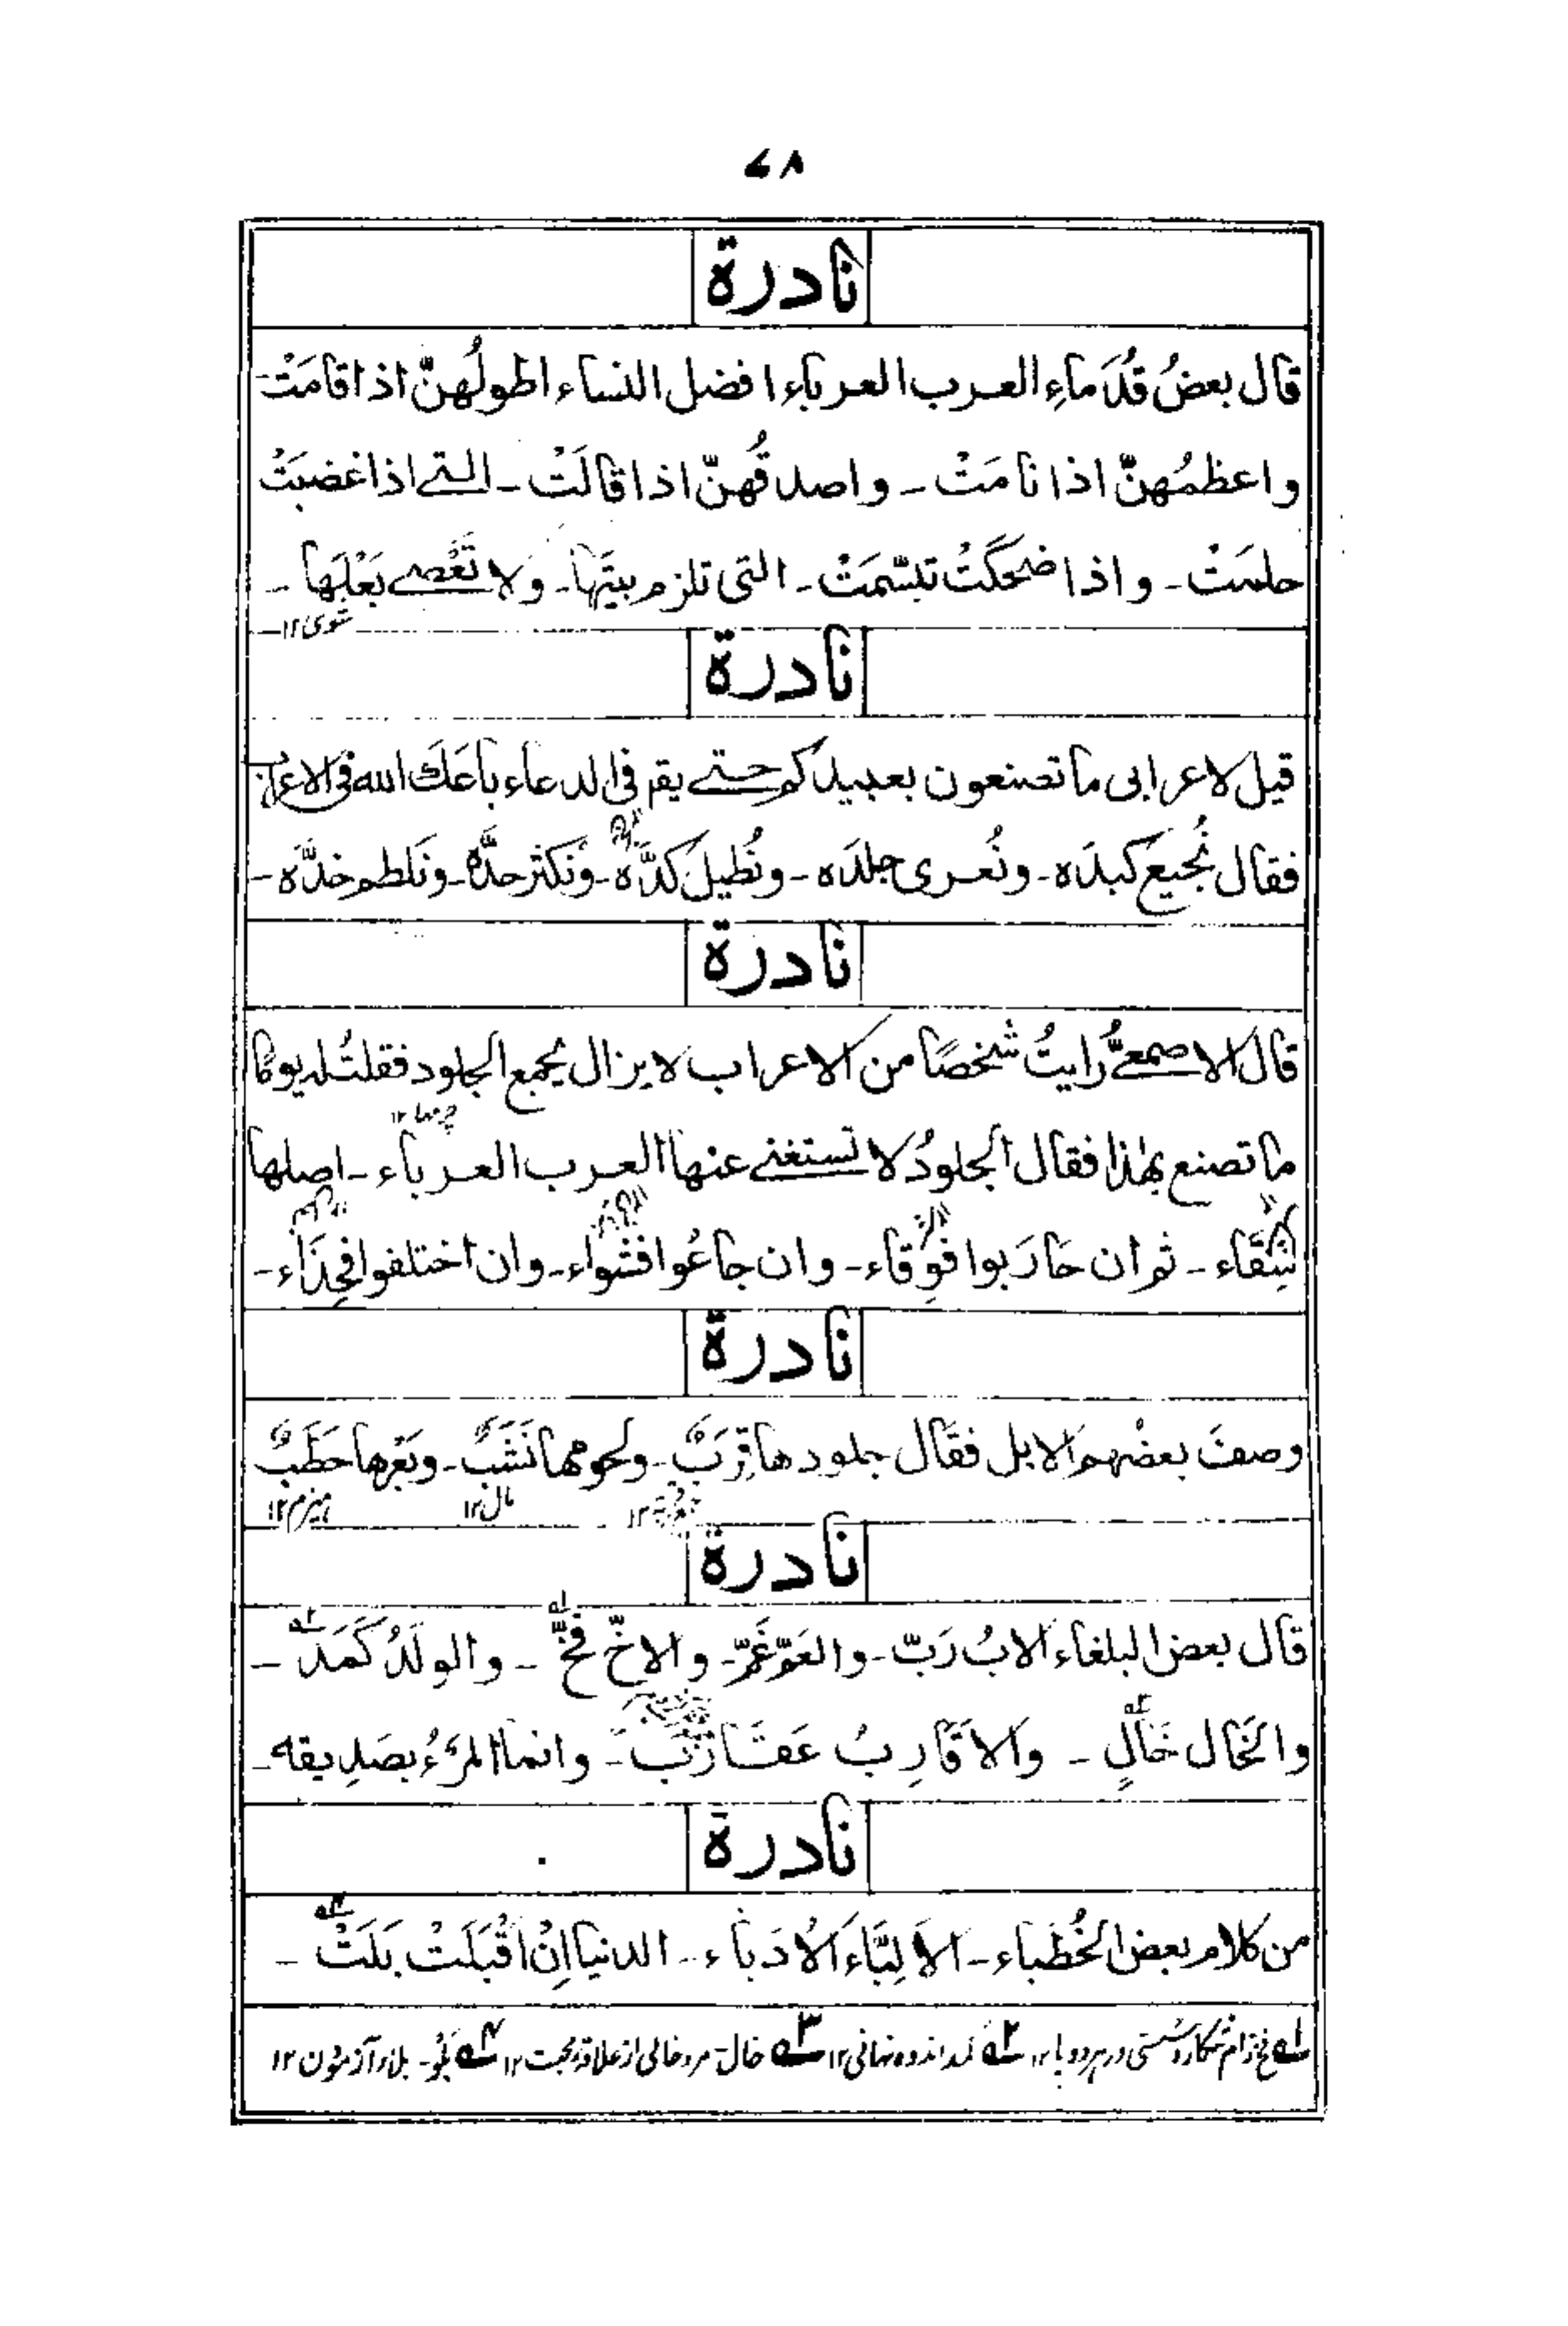 ٦٨
نادرة
قال بعضُ قُدَماءِ العرب العرباء افضل النساء اطولُهنّ اذا قامَتْ-
واعظمُهنّ اذا نامَتْ - واصدقُهنّ اذا قالَتْ - التے اذا غضبَتْ
حلمَتْ - واذا ضحكَتْ تبسّمَتْ - التى تلزم بيتَها - ولا تَعْصے بَعْلَها -
شوى ١٢
نادرة
قيل لاعرابى ما تصنعون بعبيدكم حتے يقم فى الدعاء باعَكَ الله فى الاعراب
فقال نُجيعَ كبدَه - ونُعرى جلدَه - ونُطيل كدَّه - ونَكثر حدَّه - ونَلطم خدَّه -
نادرة
قال الاصمعےُّ رايتُ شخصًا من الاعراب لا يزال يجمع الجلود فقلتُ له يومًا
چرمها ١٢
ما تصنع بهٰذا فقال الجلودُ لا تستغنے عنها العرب العرباء - اصلها
سِقَاء - ثم ان حارَبوا فوِقاء - وان جاعُوا فشواء - وان اختلفوا فحِذَاء -
نادرة
وصفَ بعضُهم الابل فقال جلودها قِرَبٌ - ولحومها نَشَبٌ - وبَعْرها حَطَبٌ
مال ١٢
هيزم ١٢
نادرة
قال بعض البلغاء الابُ رَبّ - والعَمّ غَمّ - والاخّ فَخّ - والولَدُ كَمَد -
والخَال خَالٍ - والاَقَارِبُ عَقَارَبَ - وانما المرءُ بصَدِيقه -
نادرة
من كلام بعض الخُطباء - الاَلِبَّاءَ الاُدَباء - الدنيا اِنْ اَقْبَلَتْ بَلَتْ -
١ فخ دام شكار وسستى در هر دو پا ١٢ ٢ كمد اندوه نهانى ١٢ ٣ خال - مرد خالى از علاقۂ محبت ١٢ ٤ بَلْوُ - بلاء و آزمودن ١٢